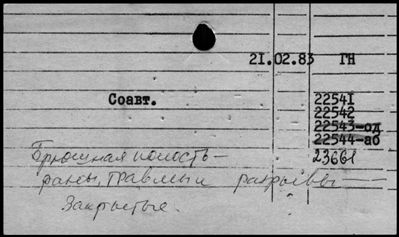 21.02.83 ГН
Соавт.
22541
22542
22543-од
22544-аб
23661
Брюшная полость-
раны, травмы и разрывы -
Закрытые.